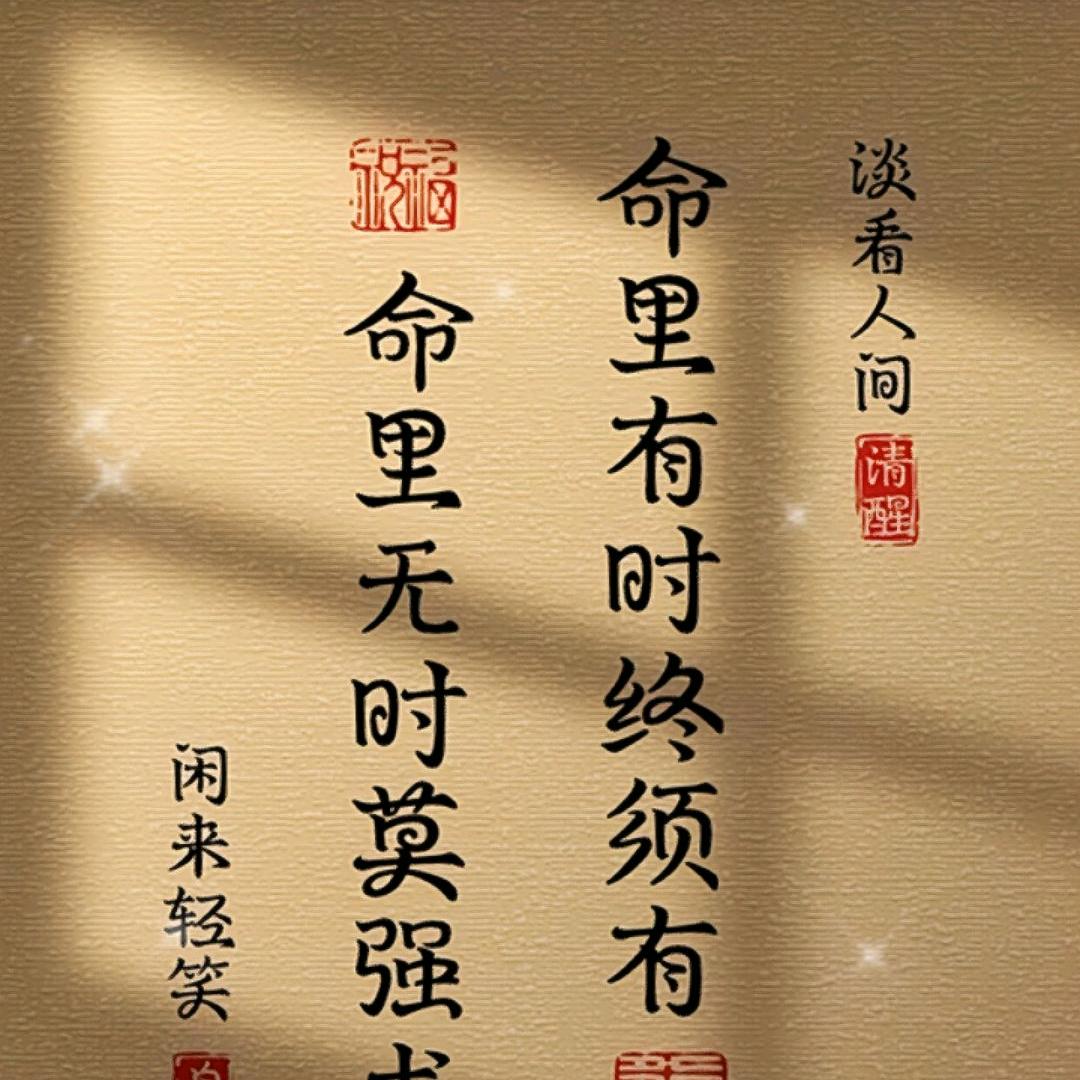 淡看人间
清醒
命里有时终须有
命里无时莫强
闲来轻笑